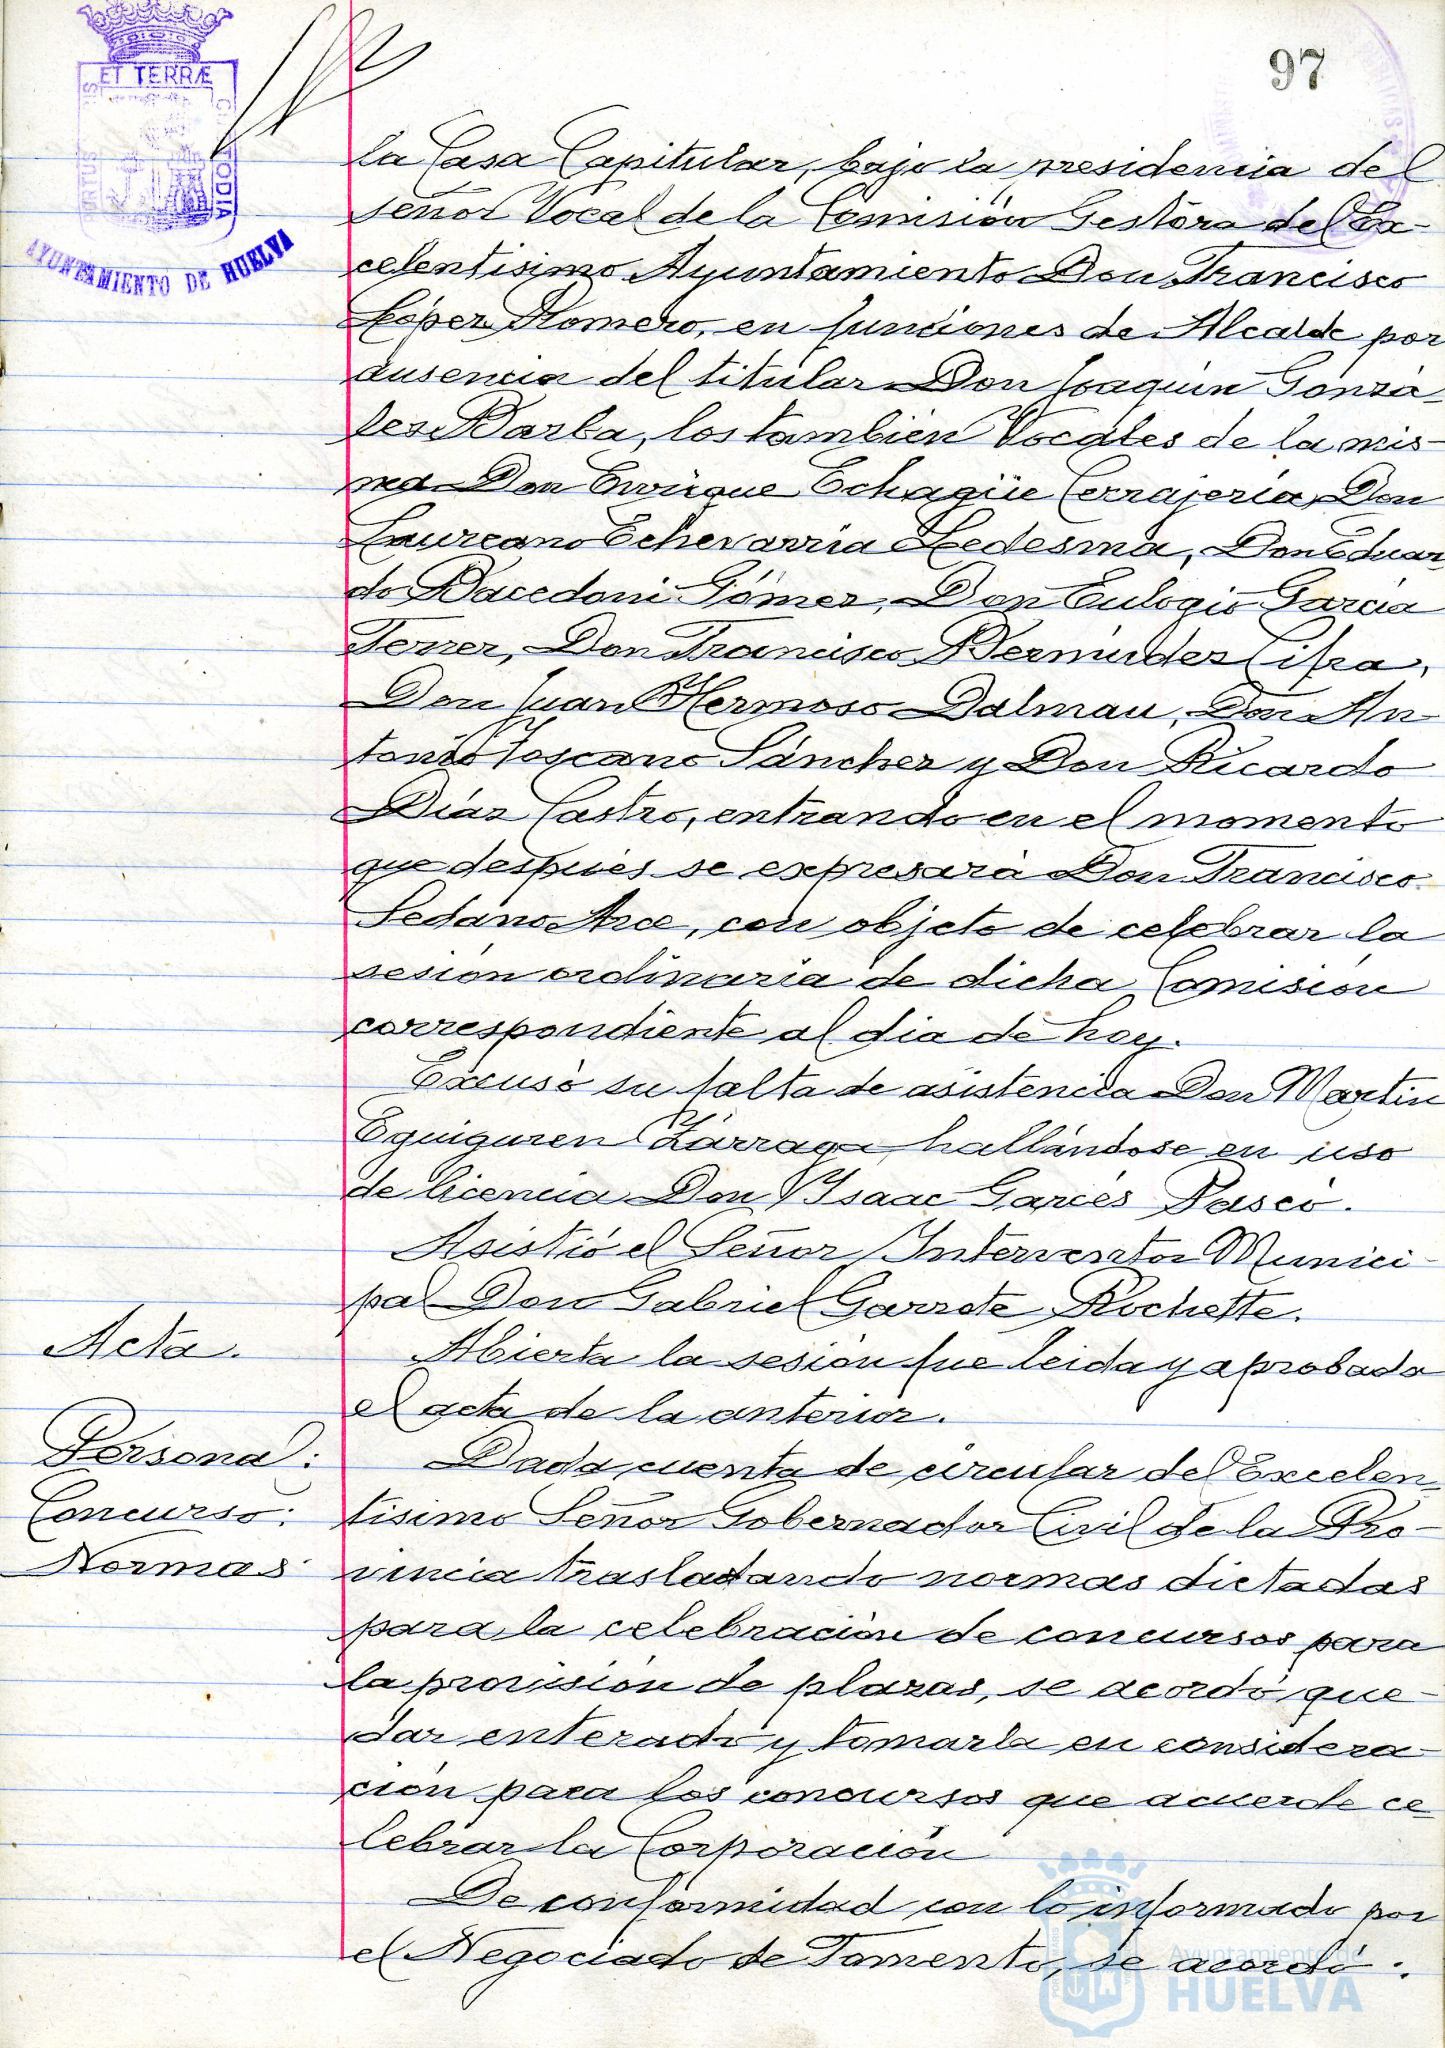 97
ET TERRÆ
PORTUS MARIS
CUSTODIA
AYUNTAMIENTO DE HUELVA
la Casa Capitular, bajo la presidencia del
señor Vocal de la Comisión Gestora del Ex-
celentisimo Ayuntamiento Don Francisco
López Romero, en funciones de Alcalde por
ausencia del titular Don Joaquín Gonzá-
lez Barba, los también Vocales de la mis-
ma Don Enrique Echagüe Cerrajería, Don
Laureano Echevarría Ledesma, Don Eduar
do Bacedoni Gómez, Don Eulogio García
Ferrer, Don Francisco Bermúdez Cifra,
Don Juan Hermoso Dalmau, Don An-
tonio Toscano Sánchez y Don Ricardo
Díaz Castro, entrando en el momento
que después se expresará Don Francisco
Sedano Arce, con objeto de celebrar la
sesión ordinaria de dicha Comisión
correspondiente al dia de hoy.
Excusó su falta de asistencia Don Martin
Eguiguren Zárraga, hallándose en uso
de licencia Don Isaac Garcés Pasco.
Asistió el Señor Interventor Munici-
pal Don Gabriel Garrote Rochette.
Acta.
Abierta la sesión fue leida y aprobada
el acta de la anterior.
Personal:
Dada cuenta de circular del Excelen
Concurso:
tisimo Señor Gobernador Civil de la Pro-
Normas
vincia trasladando normas dictadas
para la celebración de concursos para
la provisión de plazas, se acordó que-
dar enterado y tomarla en considera-
ción para los concursos que acuerde ce-
lebrar la Corporación
De conformidad con lo informado por
el Negociado de Fomento, se acordó:
Ayuntamiento de
HUELVA